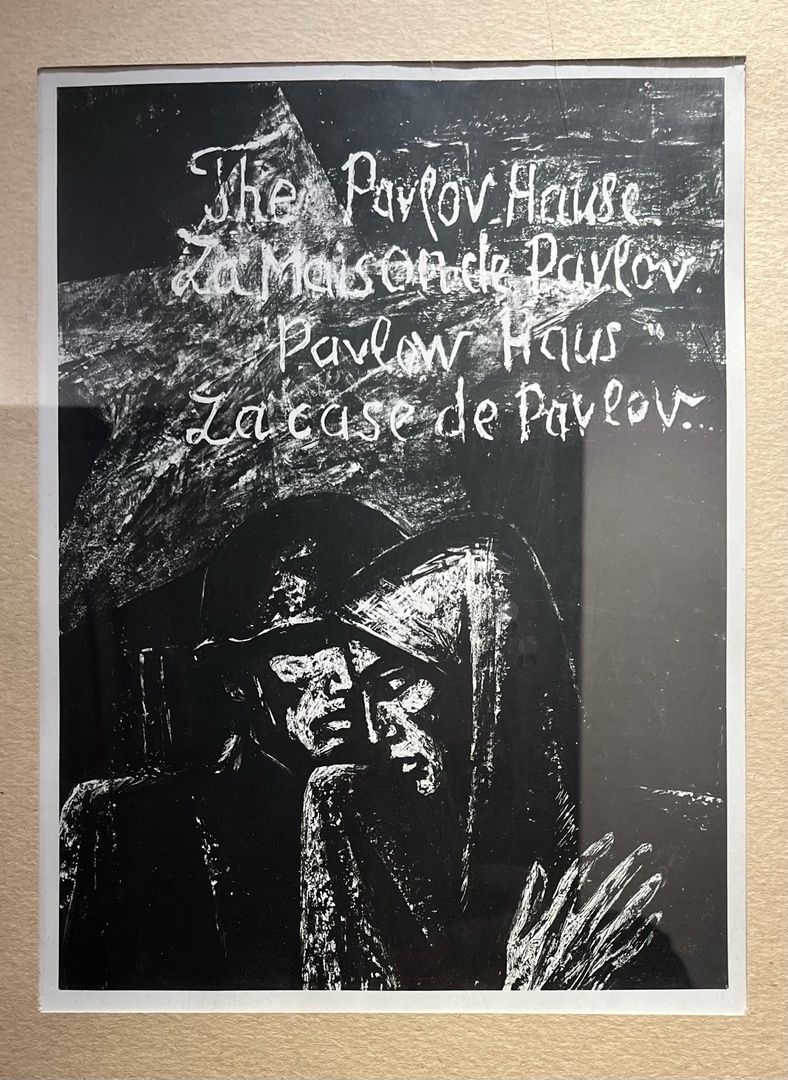 The Pavlov Hause.
La Maison de Pavlov.
Pavlow Haus
La case de Pavlov...